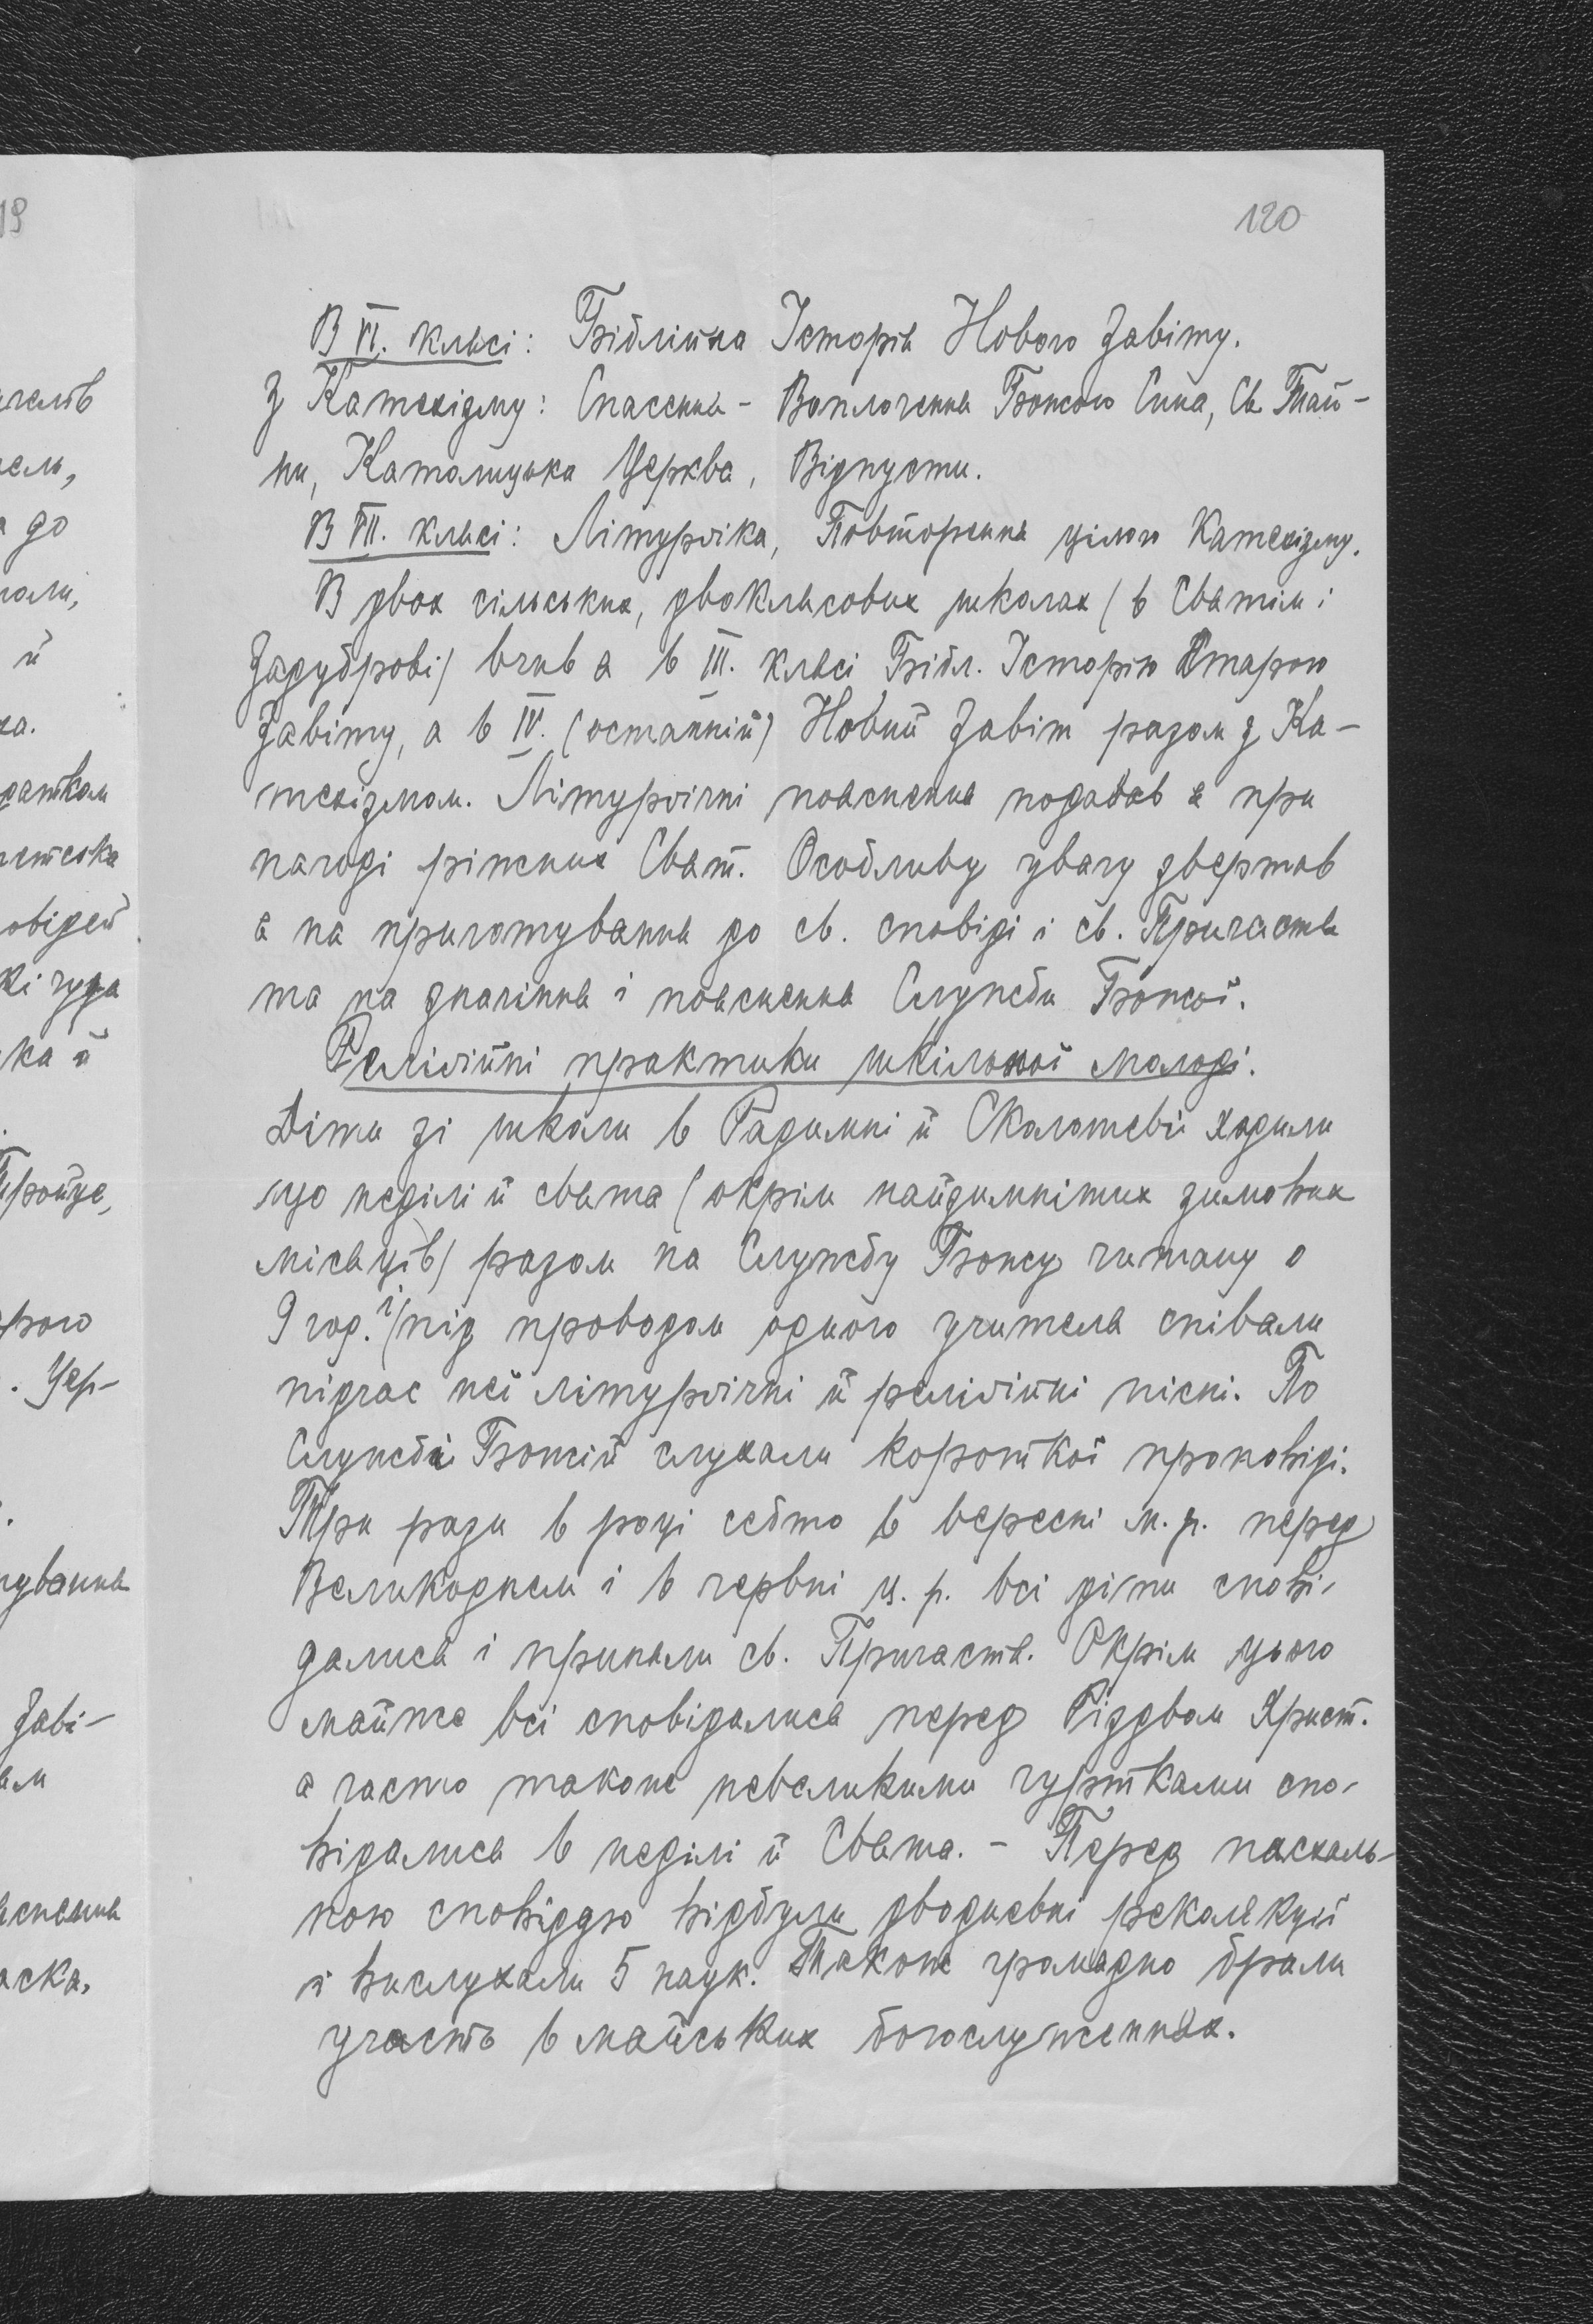 120
В VI. клясі: Біблійна Історія Нового Завіту.
З Катехізму: Спасення - Воплочення Божого Сина, Св. Тай-
ни, Католицька Церква, Відпусти.
В VII. клясі: Літурґіка, Повторення цілого Катехізму.
В двох сільських, двоклясових школах (в Святім і
Задуброві) вчив я в III. клясі Бібл. Історію Старого
Завіту, а в IV. (останній) Новий Завіт разом з Ка-
техізмом. Літурґічні пояснення подавав я при
нагоді ріжних Свят. Особливу увагу звертав
я на приготування до св. сповіди і св. Причастя
та на значіння і пояснення Служби Божої.
Реліґійні практики шкільної молоді.
Діти зі школи в Радимні й Скалошеві ходили
що неділі й свята (окрім найзимніших зимових
місяців) разом на Службу Божу читану о
9 год. і під проводом одного учителя співали
підчас неї літурґічні й реліґійні пісні. По
Службі Божій слухали короткої проповіді.
Три рази в році себто в вересні м. р. перед
Великоднем і в червні ц. р. всі діти спові-
далися і приняли св. Причастя. Окрім цього
майже всі сповідалися перед Різдвом Христ.
а часто також невеликими гуртками спо-
відалися в неділі й Свята. - Перед пасхаль-
ною сповіддю відбули дводневні реколєкції
й вислухали 5 наук. Також громадно брали
участь в майських богослуженнях.
19
до
й
ка.
овідей
кі чуда
ка й
Тройце,
. Цер-
Заві-